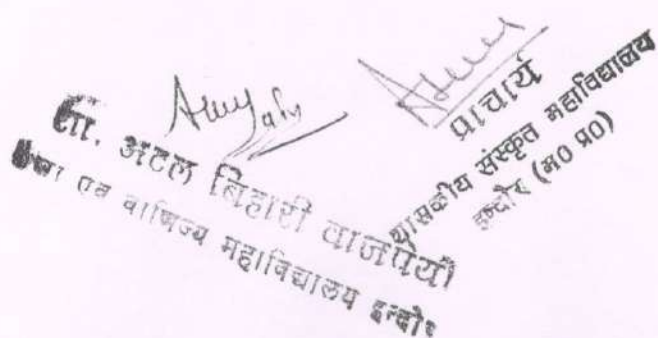 शा. अटल बिहारी वाजपेयी
कला एवं वाणिज्य महाविद्यालय इन्दौर
प्राचार्य
शासकीय संस्कृत महाविद्यालय
इन्दौर (म0 प्र0)